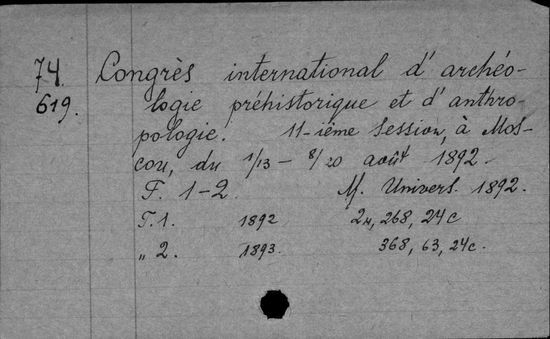 74. Congrès international d'archéo-
619. logie préhistorique et d'anthro-
pologie. 11-ième Session, à Mos-
cou, du 1/13 – 8/20 août 1892.
T. 1–2. M. Univers. 1892.
T. 1. 1892 2н, 268, 24с
„ 2. 1893. 368, 63, 24с.